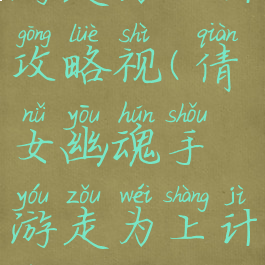 gōng lüè shì qiàn
攻略视(倩
nǚ yōu hún shǒu
女幽魂手
yóu zǒu wéi shàng jì
游走为上计